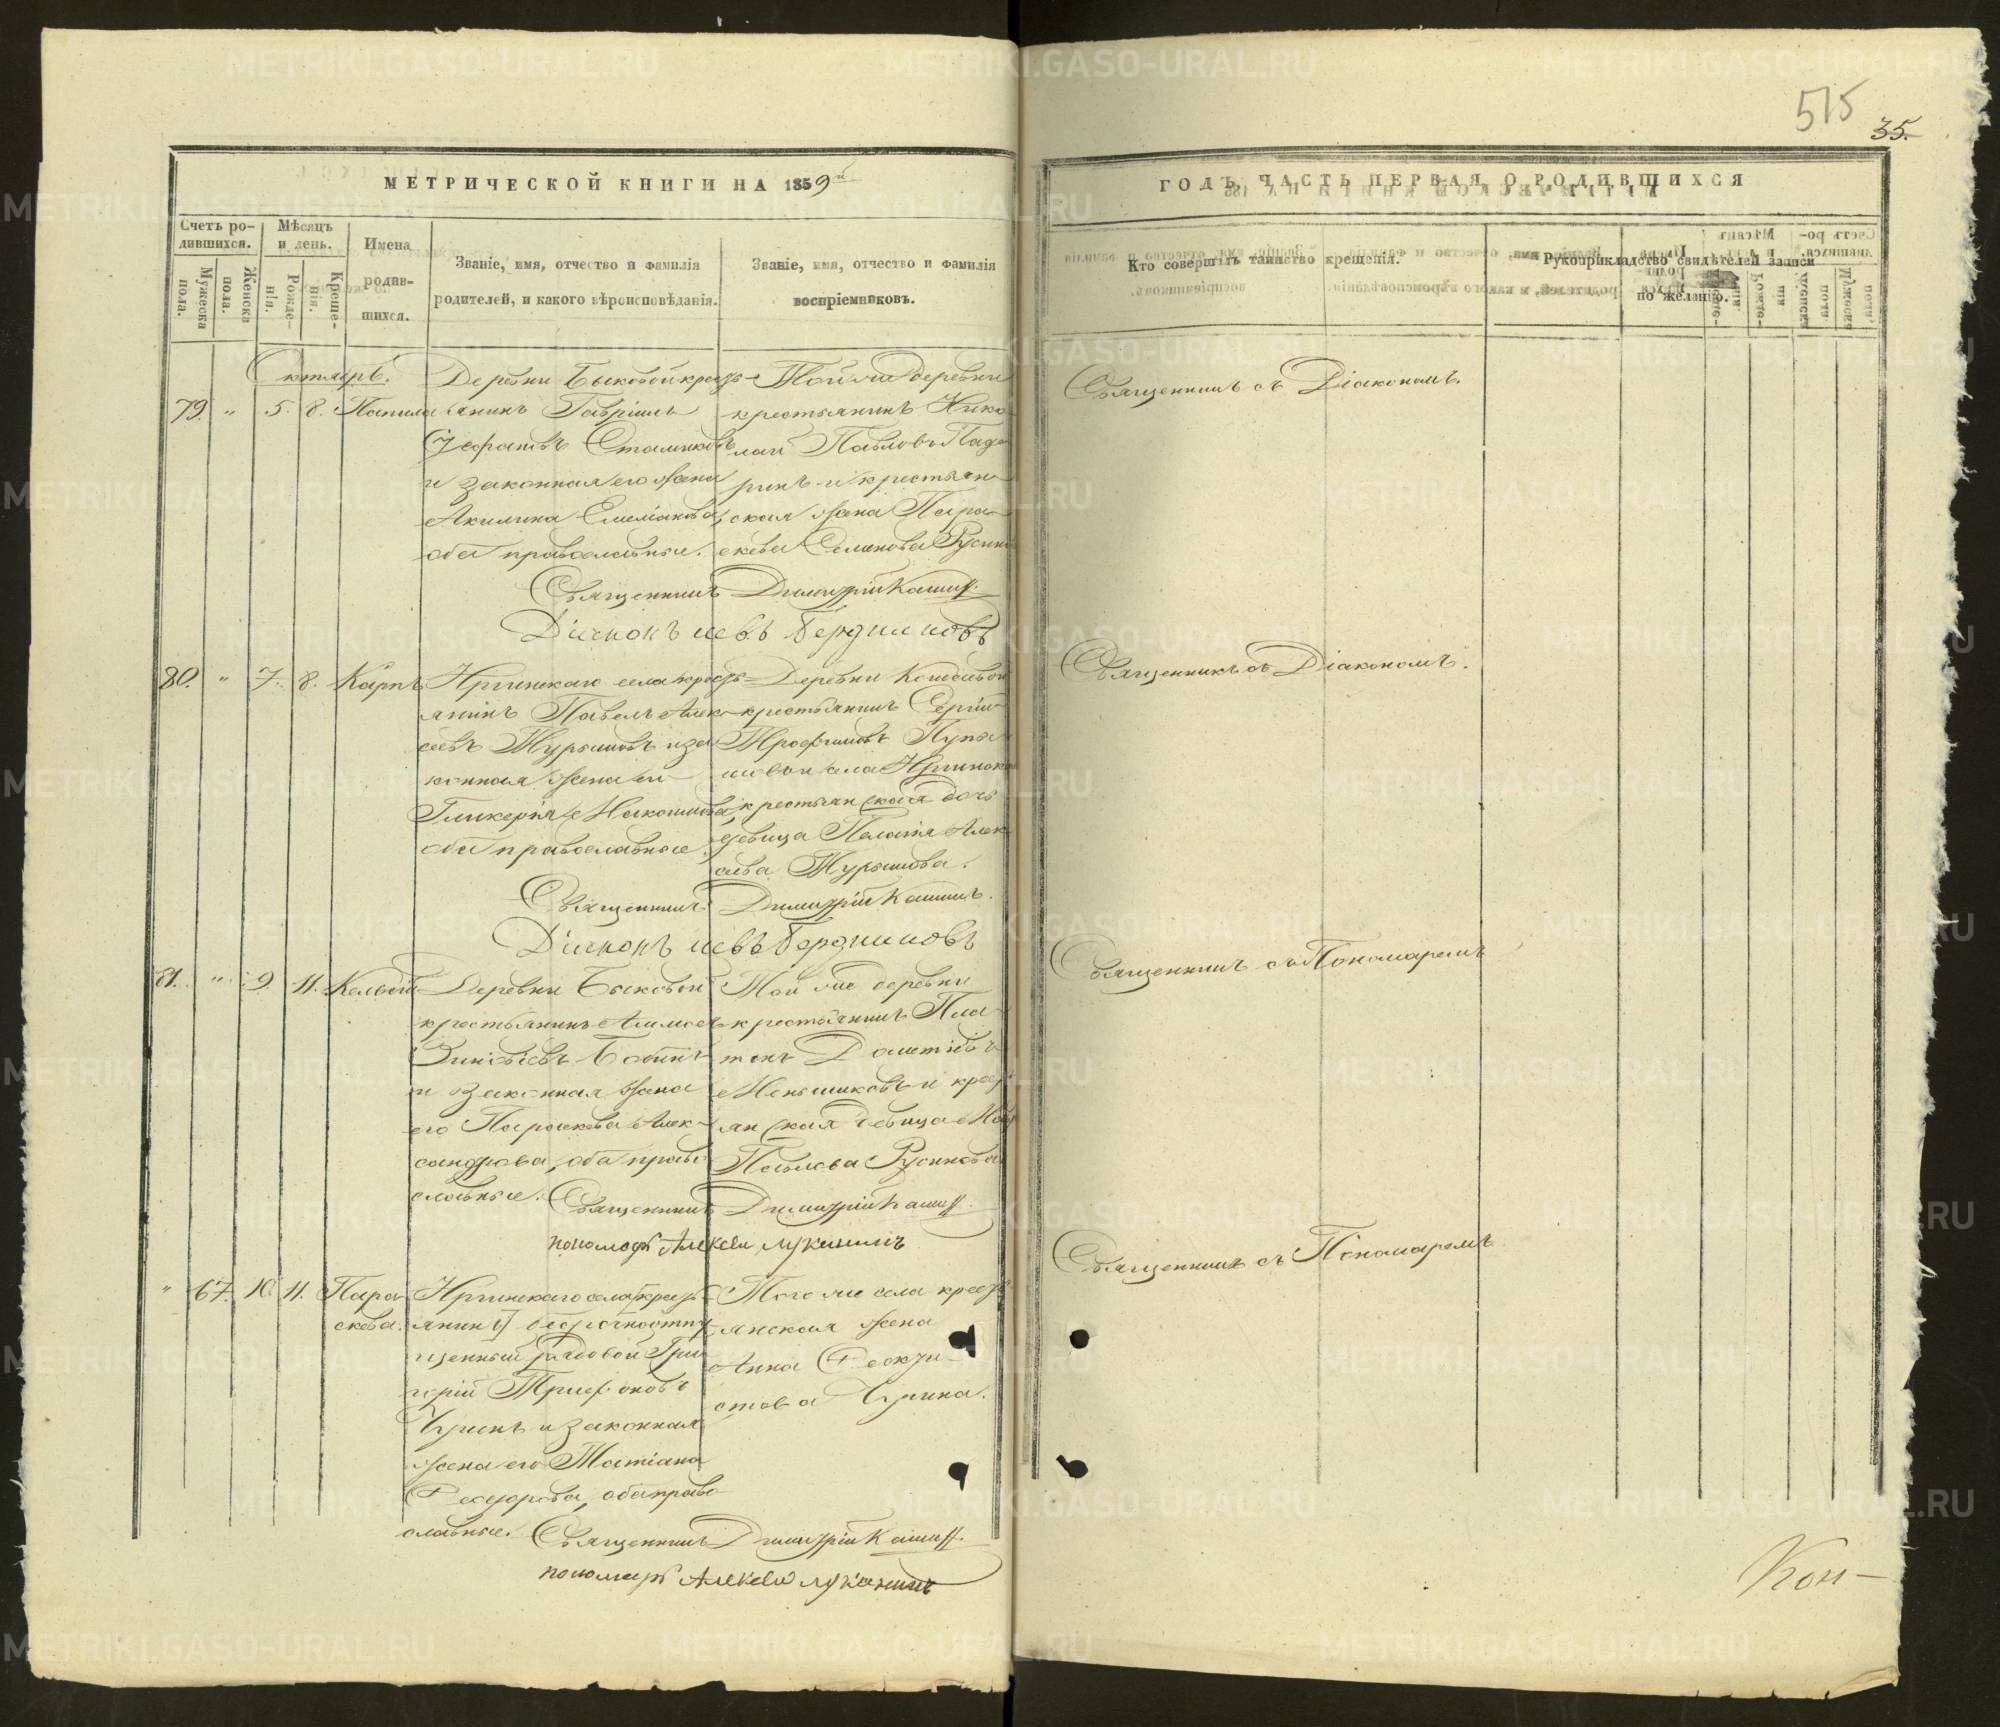 515
35.
МЕТРИЧЕСКОЙ КНИГИ НА 1859й
Счетъ ро-
дившихся.
Мѣсяцъ
и день.
Мужеска
пола.
Женска
пола.
Рожде-
нія.
Креще-
нія.
Имена
родив-
шихся.
Званіе, имя, отчество и фамилія
родителей, и какого вѣроисповѣданія.
Званіе, имя, отчество и фамилія
воспріемниковъ.
Октябрь.
79. " 5. 8.
Деревни Быковой крестъ-
янинъ Гавріилъ
Стольниковъ
и законная его жена
Акилина Емельянова,
оба православные.
Той же деревни
крестьянинъ Нико-
лай Павловъ
и крестьян-
ская жена Пара-
скева
Священникъ Димитрій Кашинъ.
Діаконъ Левъ Бердниковъ
80. " 7. 8. Карпъ
Иргинскаго села крестъ-
янинъ Павелъ Алек-
сѣевъ и за-
конная жена его
Гликерія
оба православные.
Деревни
крестьянинъ Сергій
Трофимовъ
села Иргинскаго
крестьянская дочь
девица Пелагія Алек-
сѣева
Священникъ Димитрій Кашинъ.
Діаконъ Левъ Бердниковъ
81. " 9. 11.
Деревни Быковой
крестьянинъ
Зиновіевъ
и законная жена
его Параскева Алек-
сандрова, оба право-
славные.
Той же деревни
крестьянинъ Пла-
тонъ
Меньшиковъ и крестъ-
янская девица
Павлова Русинова
Священникъ Димитрій Кашинъ.
пономарь Алексей Луканинъ
" 67. 10. 11. Пара-
скева.
Иргинскаго села крестъ-
янинъ безсрочноотпу-
щенный рядовой Гри-
горій Трифоновъ
Чуринъ и законная
жена его Татіана
Ѳеодорова, оба право-
славные.
Того же села крестъ-
янская жена
Анна Ѳеокти-
стова Чурина.
Священникъ Димитрій Кашинъ.
пономарь Алексей Луканинъ
ГОДЪ, ЧАСТЬ ПЕРВАЯ О РОДИВШИХСЯ
Кто совершалъ таинство крещенія.
Рукоприкладство свидѣтелей записи
по желанію.
Священникъ съ Діакономъ.
Священникъ съ Діакономъ.
Священникъ съ Пономаремъ
Священникъ съ Пономаремъ
Кон-
METRIKI.GASO-URAL.RU